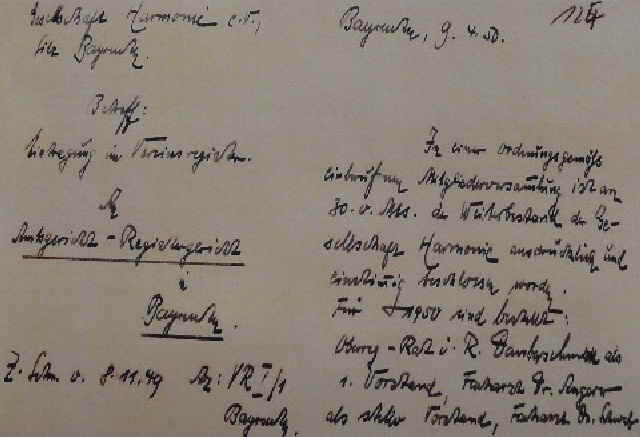 Gesellschaft Harmonie e.V.,
Sitz Bayreuth.
Betreff:
Eintragung im Vereinsregister.
An
Amtsgericht - Registergericht
in
Bayreuth.
Z. Schr. v. 8.11.49 Az: VR I/1
Bayreuth.
Bayreuth, 9. 4. 50.
In einer ordnungsgemäß
einberufenen Mitgliederversammlung ist am
30. v. Mts. der Weiterbestand der Ge-
sellschaft Harmonie ausdrücklich und
einstimmig beschlossen worden.
Für 1950 sind bestellt:
Oberreg.-Rat i. R. als
1. Vorstand, Facharzt Dr. Angerer
als stellv. Vorstand, Facharzt Dr.